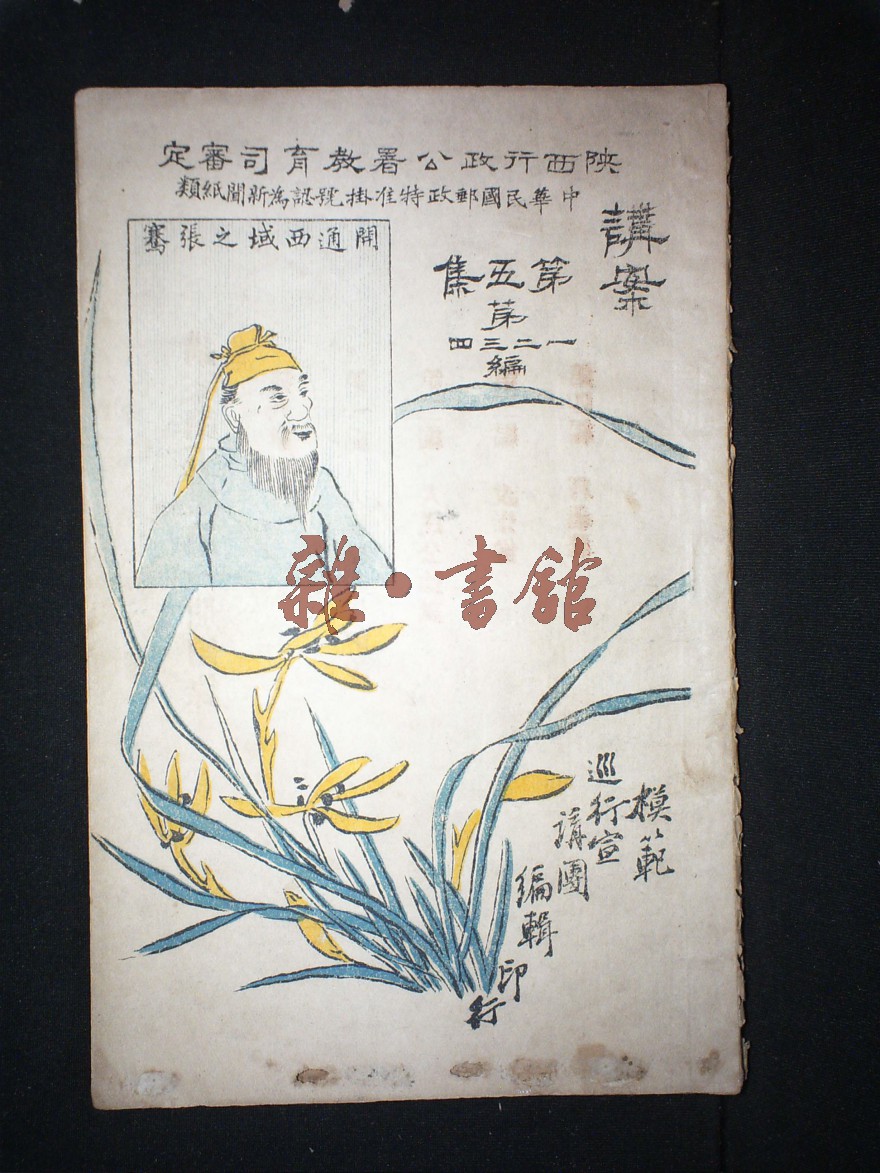 陝西行政公署教育司審定
中華民國郵政特准掛號認為新聞紙類
講案
第五集
第
一二三四
編
開通西域之張騫
雜·書館
模範
巡行宣
講團
編輯
印行